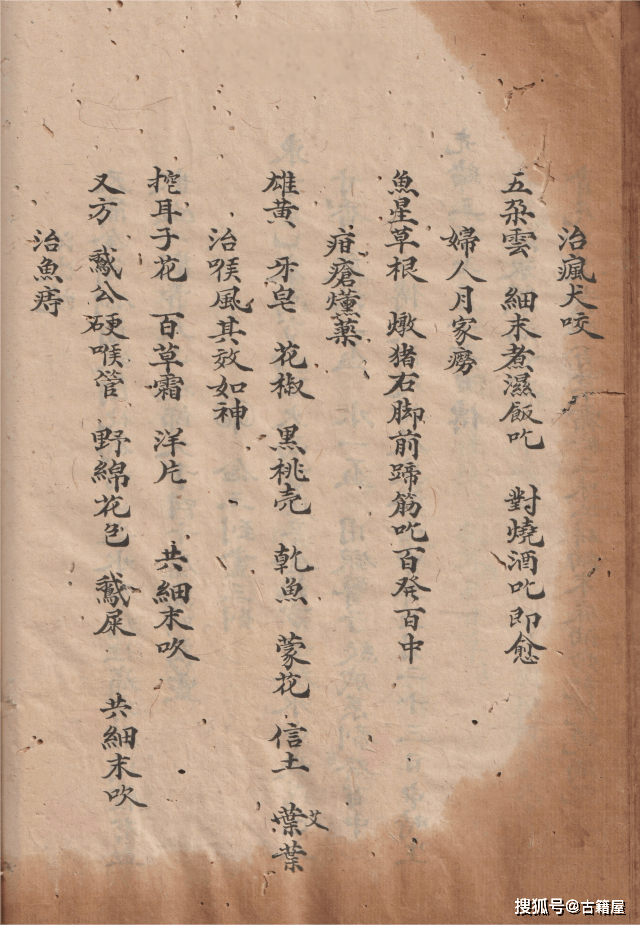 治瘋犬咬
五朶雲 細末煮濕飯吃 對燒酒吃即愈
婦人月家癆
魚星草根 燉猪右脚前蹄筋吃百發百中
疳瘡燻藥
雄黄 牙皂 花椒 黒桃壳 乾魚 蒙花 信土 艾葉
治喉風其效如神
挖耳子花 百草霜 洋片 共細末吹
又方 鵞公硬喉管 野綿花包 鵞屎 共細末吹
治魚痔
搜狐号@古籍屋